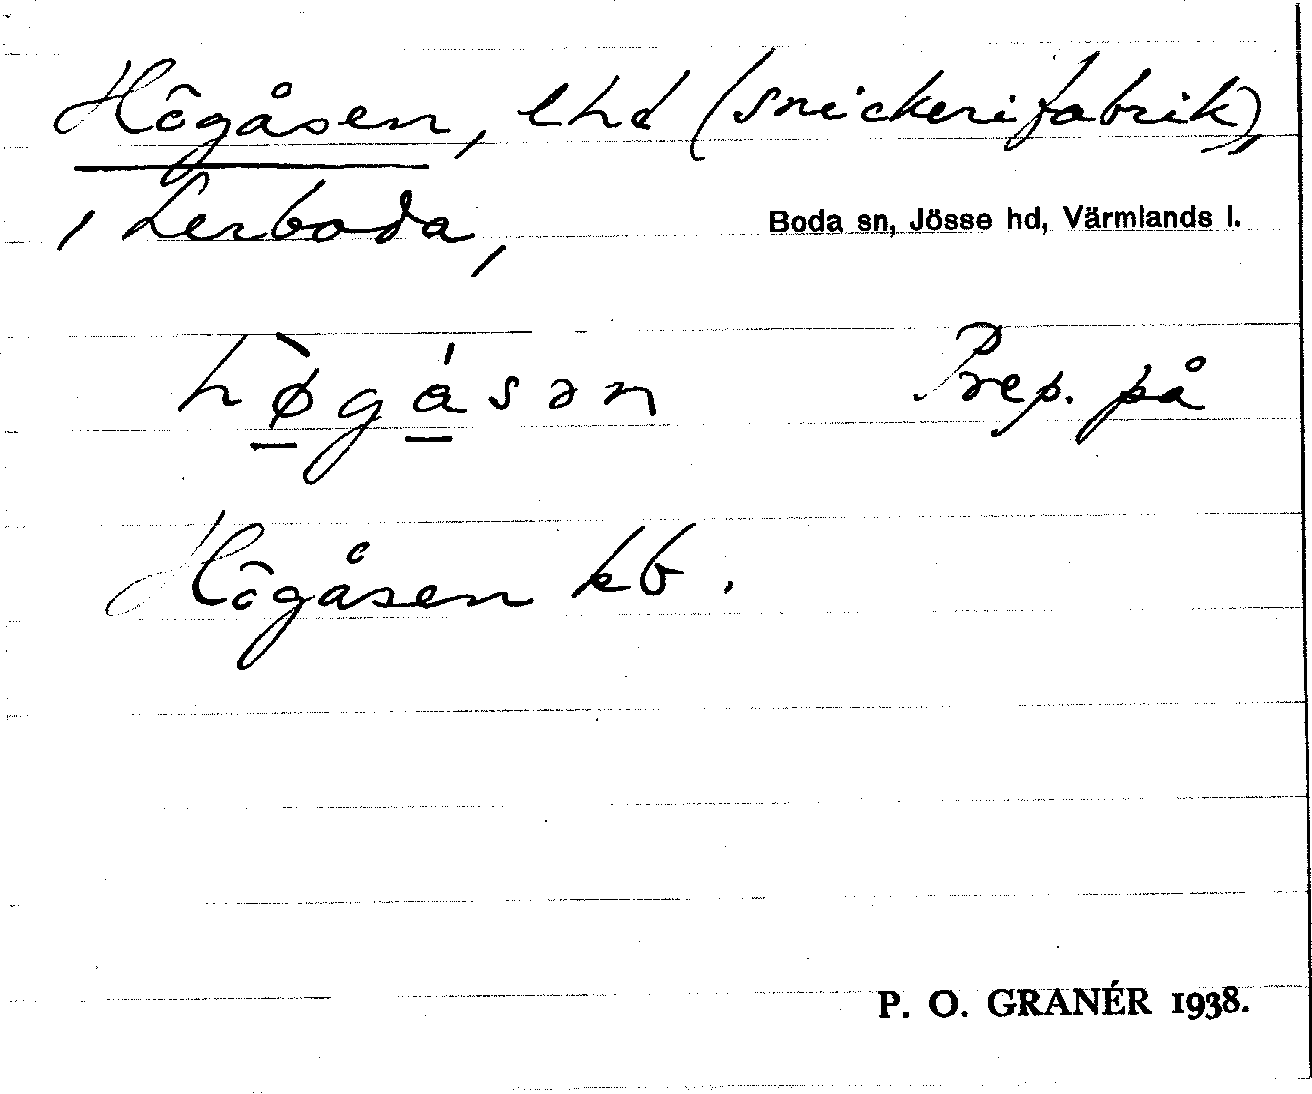 Högåsen, lhd (snickerifabrik),
i Lerboda, Boda sn, Jösse hd, Värmlands l.
hø̠̀gá̠sən Prep. på
Högåsen kb.
P. O. GRANÉR 1938.